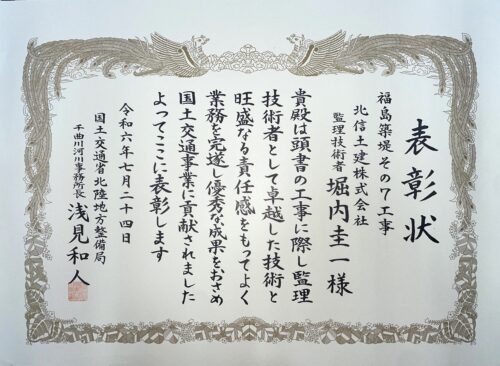 表彰状
福島築堤その7工事
北信土建株式会社
監理技術者 堀内圭一様
貴殿は頭書の工事に際し監理
技術者として卓越した技術と
旺盛なる責任感をもってよく
業務を完遂し優秀な成果をおさめ
国土交通事業に貢献されました
よってここに表彰します
令和六年七月二十四日
国土交通省北陸地方整備局
千曲川河川事務所長 浅見和人